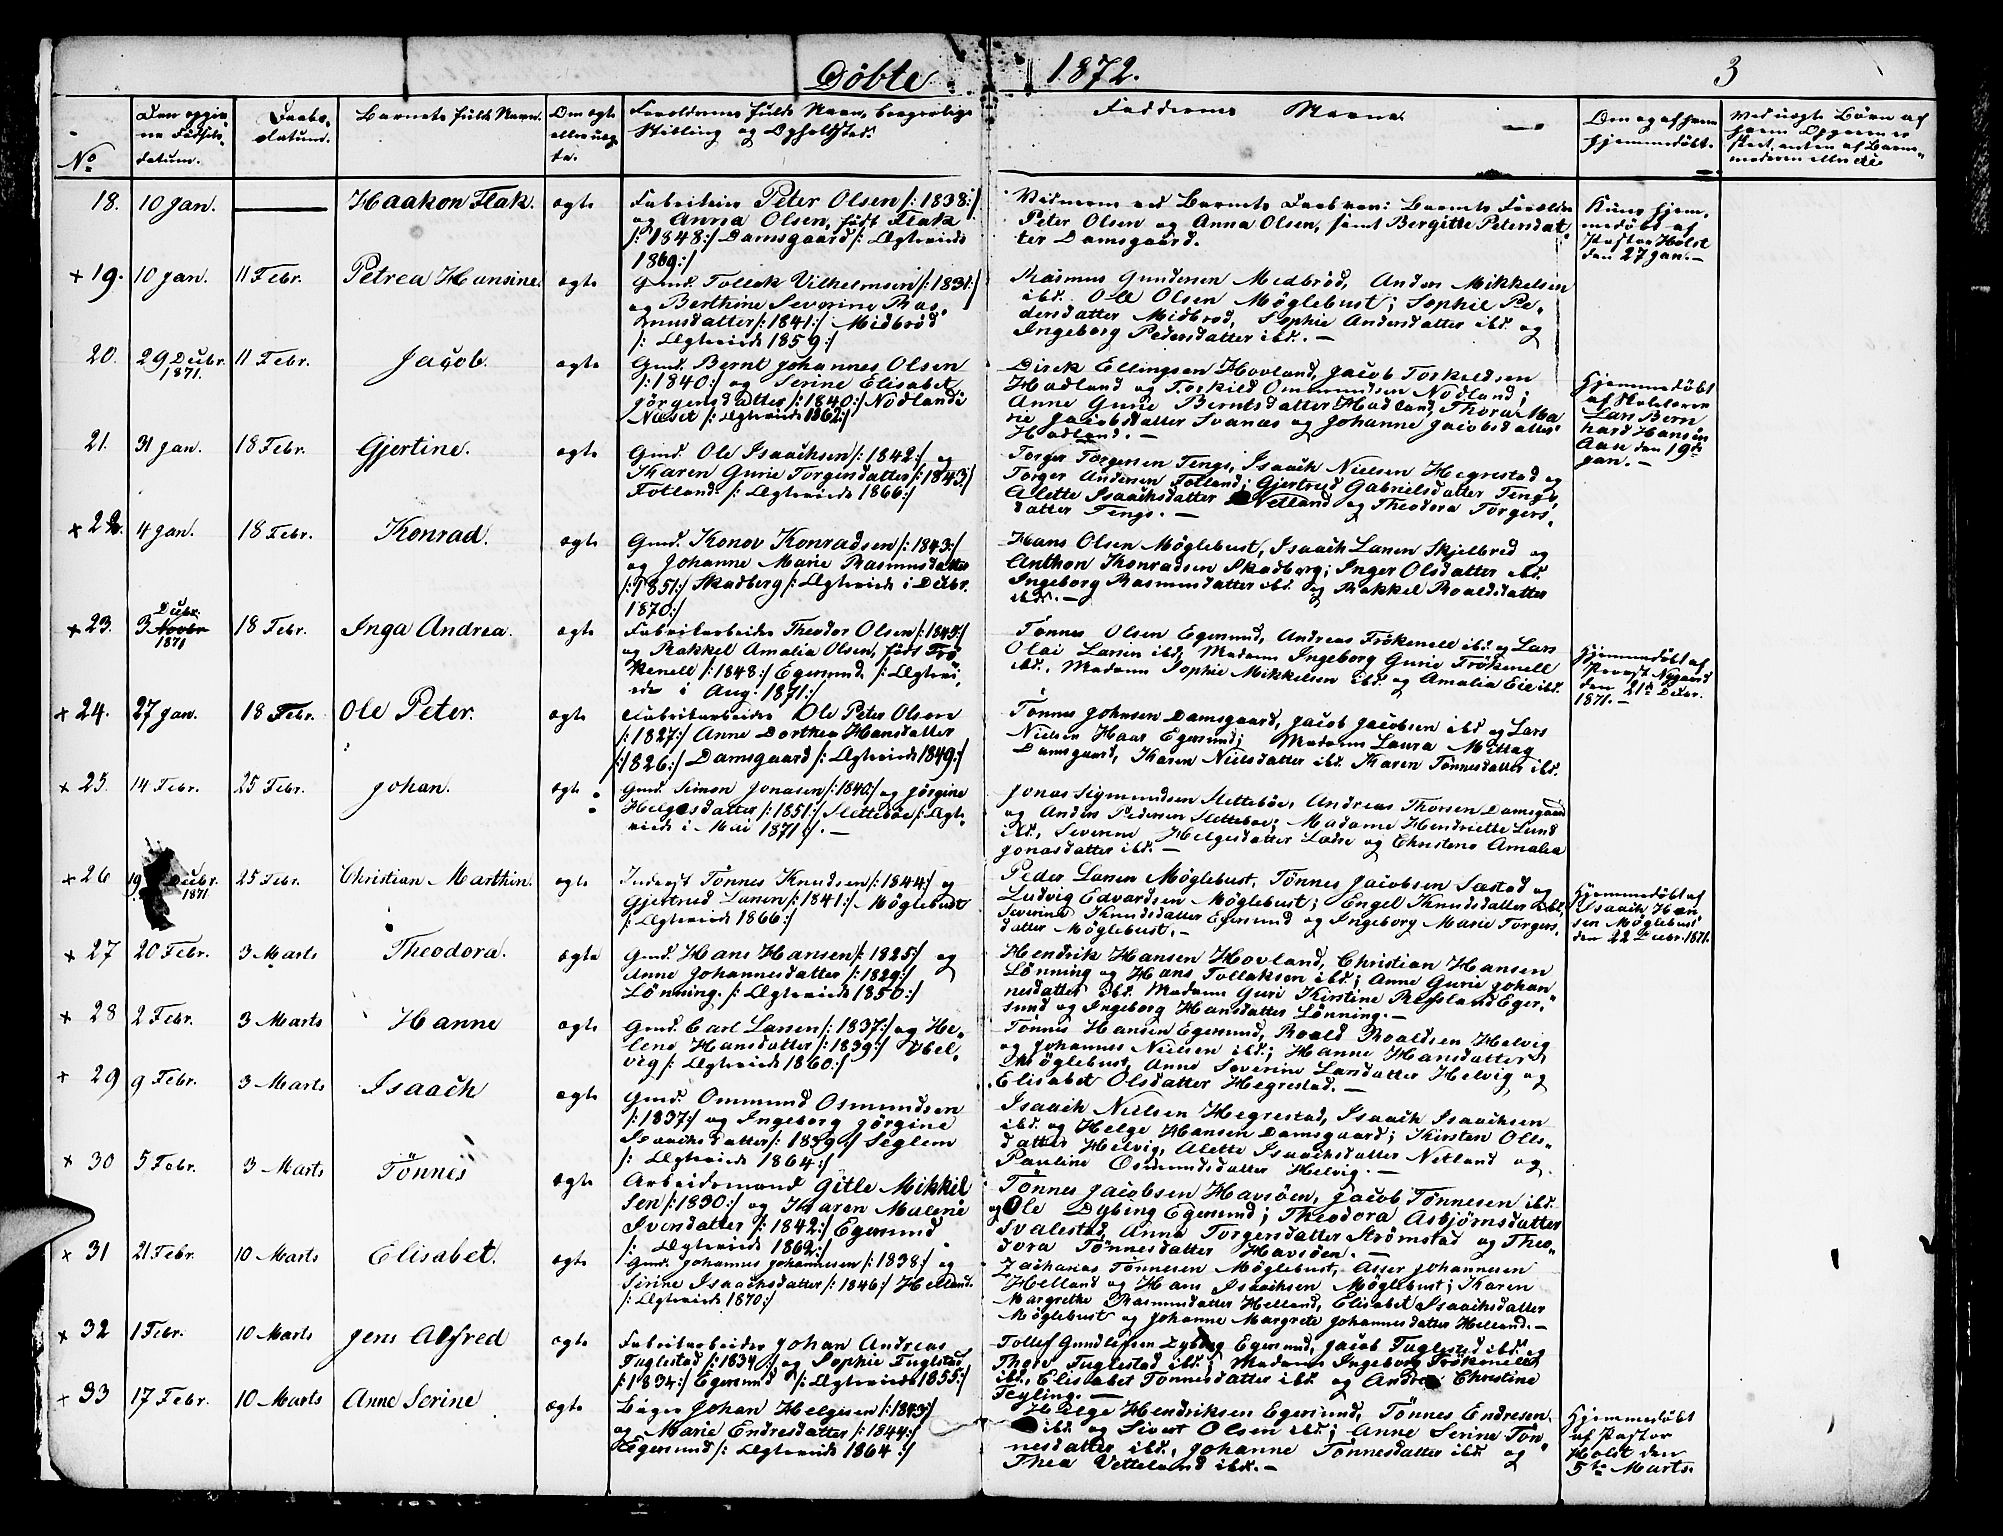 Døbte 1872. 3
No
Den opgivne Fødselsdatum.
Daabsdatum.
Barnets fulde Navn.
Om ægte eller uægte.
Forældrenes fulde Navn, borgerlige Stilling og Opholdsted.
Faddernes Navne
Om og af hvem hjemmedøbt.
Ved uægte Børn af
18. 10 Jan. Haakon Flak ægte
Peter Olsen /: 1838:/
og Anna Olsen, født Flak
/: 1848:/ Damsgaard /: Ægteviede
1869:/
Vidnerne ved Barnets Daab var: Barnets Forældre
Peter Olsen og Anna Olsen, samt Bergitte Petersdat-
ter Damsgaard.
Kun hjem-
medøbt af
Pastor Holst
den 27 Jan.-
+ 19. 10 Jan. 11 Febr. Petrea Hansine. ægte
Gmd. Tollak Vilhelmsen /: 1831:/
og Berthine Severine Ras-
musdatter /: 1841:/ Midbrød
/: Ægteviede 1859:/
Rasmus Gundersen Medbrød, Anders Mikkelsen
ibd. Ole Olsen Møglebust; Sophie Pe-
dersdatter Midbrød, Sophie Andersdatter ibd. og
Ingeborg Pedersdatter ibd. -
20. 29 Decbr. 1871. 11 Febr. Jacob. ægte
Gmd. Bernt Johannes Olsen
/: 1840:/ og Serine Elisabet
Jørgensdatter /: 1840:/ Nodland i
Næset /: Ægteviede 1862:/
Direk Ellingsen Hovland, Jacob Torkeldsen
Hadland og Torkild Ommundsen Nodland;
Anne Gurie Berntsdatter Hadland, Thora Ma
rie Jacobsdatter Svanæs og Johanne Jacobsdatter
Hadland. -
Hjemmedøbt
af Skolelærer
Lars Bern
hard Hansen
Aase den 19de
Jan. -
21. 31 Jan. 18 Febr. Gjertine. ægte
Gmd. Ole Isaachsen /: 1842:/ og
Karen Gurie Torgersdatter /: 1843:/
Fotland. /: Ægteviede 1866:/
Torger Torgersen Tengs, Isaach Nielsen Hegrestad og
Torger Andersen Fotland; Gjertrud Gabrielsdatter Tengs
Alette Isaachsdatter Netland og Theodora Torgers-
datter Tengs. -
+ 22. 4 Jan. 18 Febr. Konrad. ægte
Gmd. Konov Konradsen /: 1843:/
og Johanne Marie Rasmusdatter
/: 1851:/ Skadberg /: Ægteviede i Decbr.
1870:/
Hans Olsen Møglebust, Isaach Larsen Skjelbred og
Anthon Konradsen Skadberg; Inger Olsdatter ibd.
Ingeborg Rasmusdatter ibd. og Rakkel Roaldsdatter
ibd. -
+ 23. 3 Decbr. Novbr 1871 18 Febr. Inga Andrea. ægte
Fabrikarbeider Theodor Olsen /: 1845:/
og Rakkel Amalia Olsen, født Frø-
kenell /: 1848:/ Egersund. /: Ægtevi-
ede i Aug. 1871:/
Tønnes Olsen Egersund, Andreas Frøkenell ibd. og Lars
Olai Larsen ibd. Madame Ingeborg Gurie Frøkenell
ibd., Madame Sophie Mikkelsen ibd. og Amalia Eie ibd.
Hjemmedøbt af
Provst Nygaard
den 21de Decbr.
1871. -
+ 24. 27 Jan. 18 Febr. Ole Peter. ægte
Fabrikarbeider Ole Peter Olsen
/: 1827:/ Anne Dorthea Hansdatter
/: 1826:/ Damsgaard /: Ægteviede 1849:/
Tønnes Johnsen Damsgaard, Jacob Jacobsen ibd. og Lars
Nielsen Haar Egersund; Madame Laura Mittag
Damsgaard, Karen Nielsdatter ibd. Karen Tønnesdatter ibd.
+ 25. 14 Febr. 25 Febr. Johan. ægte
Gmd. Simon Jonasen /: 1840:/ og Jørgine
Helgesdatter /: 1851:/ Slettebøe /: Ægte-
viede i Mai 1871:/. -
Jonas Sigmundsen Slettebøe, Andreas Thorsen Damsgaard
og Anders Pedersen Slettebøe; Madame Hendriette Lund
ibd., Severine Helgesdatter Lædre og Christene Amalia
Jonasdatter ibd. -
+ 26 19 Decbr. 1871 25 Febr. Christian Marthin. ægte
Inderst Tønnes Knudsen /: 1844:/ og
Gjertrud Larsen /: 1841:/ Møglebust
/: Ægteviede 1866:/
Peder Larsen Møglebust, Tønnes Jacobsen Sæstad og
Ludvig Edvardsen Møglebust; Engel Knudsdatter ibd.,
Severine Knudsdatter Egersund og Ingeborg Marie Torgers-
datter Møglebust. -
Hjemmedøbt af
Isaach Han
sen Møglebust
den 22 Decbr. 1871.
+ 27 20 Febr. 3 Marts Theodora. ægte
Gmd. Hans Hansen /: 1825:/ og
Anne Johannesdatter /: 1829:/
Lønning. /: Ægteviede 1850:/
Hendrik Hansen Hovland, Christian Hansen
Lønning og Hans Tollaksen ibd.; Anne Gurie Johan
nesdatter ibd. Madame Guri Kirstine Røsland Eger-
sund og Ingeborg Hansdatter Lønning. -
+ 28 2 Febr. 3 Marts Hanne ægte
Gmd. Carl Larsen /: 1837:/ og He-
lene Hansdatter /: 1839:/ Hel-
vig /: Ægteviede 1860:/
Tønnes Hansen Egersund, Roald Roaldsen Helvig
og Johannes Nielsen ibd.; Hanne Hansdatter
Møglebust, Anne Severine Larsdatter Helvig og
Elisabet Olsdatter Hegrestad. -
+ 29 9 Febr. 3 Marts Isaach ægte
Gmd. Ommund Osmundsen
/: 1837:/ og Ingeborg Jørgine
Isaachsdatter /: 1839:/ Seglem
/: Ægteviede 1864:/
Isaach Nielsen Hegrestad, Isaach Isaachsen
ibd. og Helge Hansen Damsgaard; Kirsten Ols-
datter Helvig, Alette Isaachsdatter Netland og
Pauline Osmundsdatter Helvig. -
+ 30 5 Febr. 3 Marts Tönnes ægte
Arbeidsmand Gitle Mikkel
sen /: 1830:/ og Karen Malene
Iversdatter /: 1842:/ Egersund
/: Ægteviede 1862:/
Tønnes Jacobsen Havsøen, Jacob Tønnesen ibd.
og Ole Dybing Egersund; Theodora Asbjørnsdatter
Svalestad, Anna Torgersdatter Strømstad og Theo-
dora Tønnesdatter Havsøen. -
+ 31 21 Febr. 10 Marts Elisabet. ægte
Gmd. Johannes Johannesen /: 1838:/ og
Serine Isaachsdatter /: 1846:/ Helland.
/: Ægteviede 1870:/
Zacharias Tønnesen Møglebust, Asser Johannesen
Helland og Hans Isaachsen Møglebust; Karen
Margrethe Rasmusdatter Helland, Elisabet Isaachsdatter
Møglebust og Johanne Margrete Johannesdatter Helland. -
+ 32 1 Febr. 10 Marts Jens Alfred ægte
Fabrikarbeider Johan Andreas
Fuglestad /: 1834:/ og Sophie Fuglestad
/: 1834:/ Egersund /: Ægteviede 1855:/
Tollef Gundlefsen Egersund, Jacob Fuglestad ibd. og
Thore Fuglestad ibd.; Madame Ingeborg Frøkenell
ibd., Elisabet Tønnesdatter ibd. og Andrea Christine
Feyling. -
+ 33 17 Febr. 10 Marts Anne Serine ægte
Bager Johan Helgesen /: 1843:/
og Marie Endresdatter /: 1844:/
Egersund /: Ægteviede 1864:/
Helge Hendriksen Egersund, Tønnes Endresen
ibd. og Sivert Olsen ibd.; Anne Serine Tøn-
nesdatter ibd., Johanne Tønnesdatter ibd. og
Thea Vetteland ibd. -
Hjemmedøbt
af Pastor
Holst den
5te Marts.